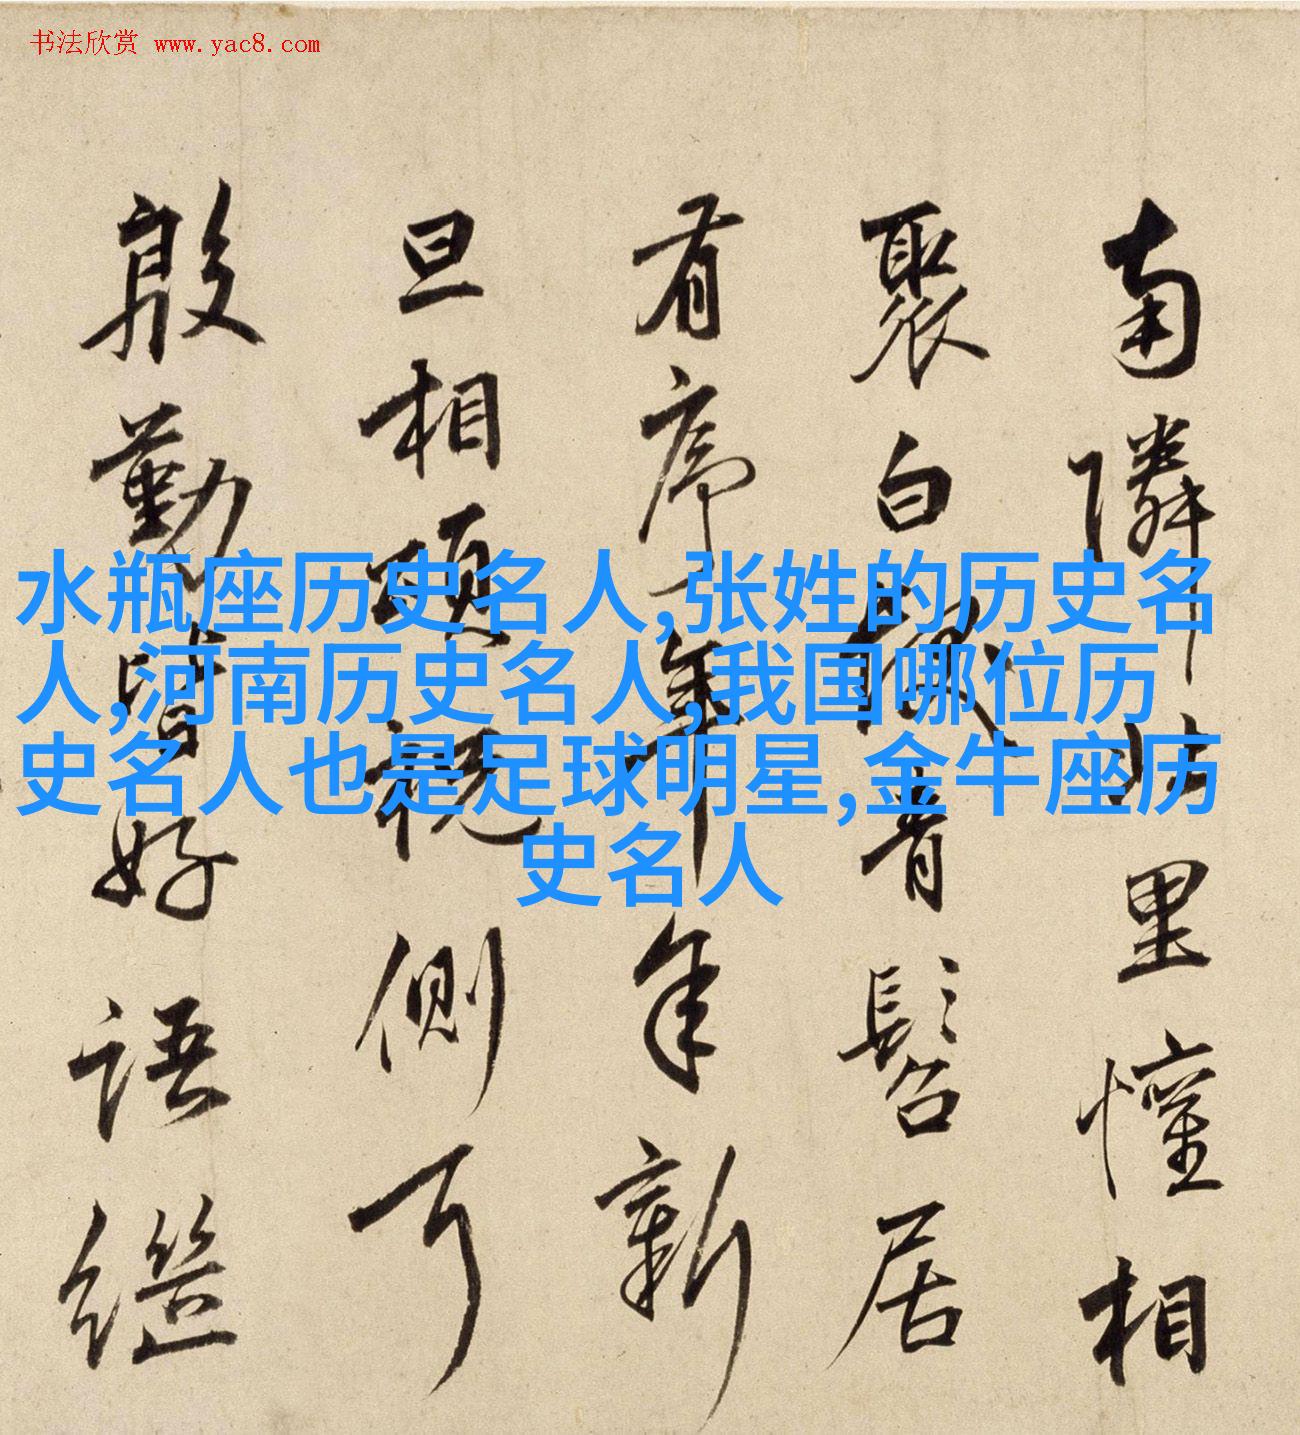 书法欣赏 www.yac8.com
水瓶座历史名人,张姓的历史名
人,河南历史名人,我国哪位历
史名人也是足球明星,金牛座历
史名人
南隣北里懽相
聚白髮青髫居
有序一年年年新
旦相顾祝侧耳
殷勤皆好语继